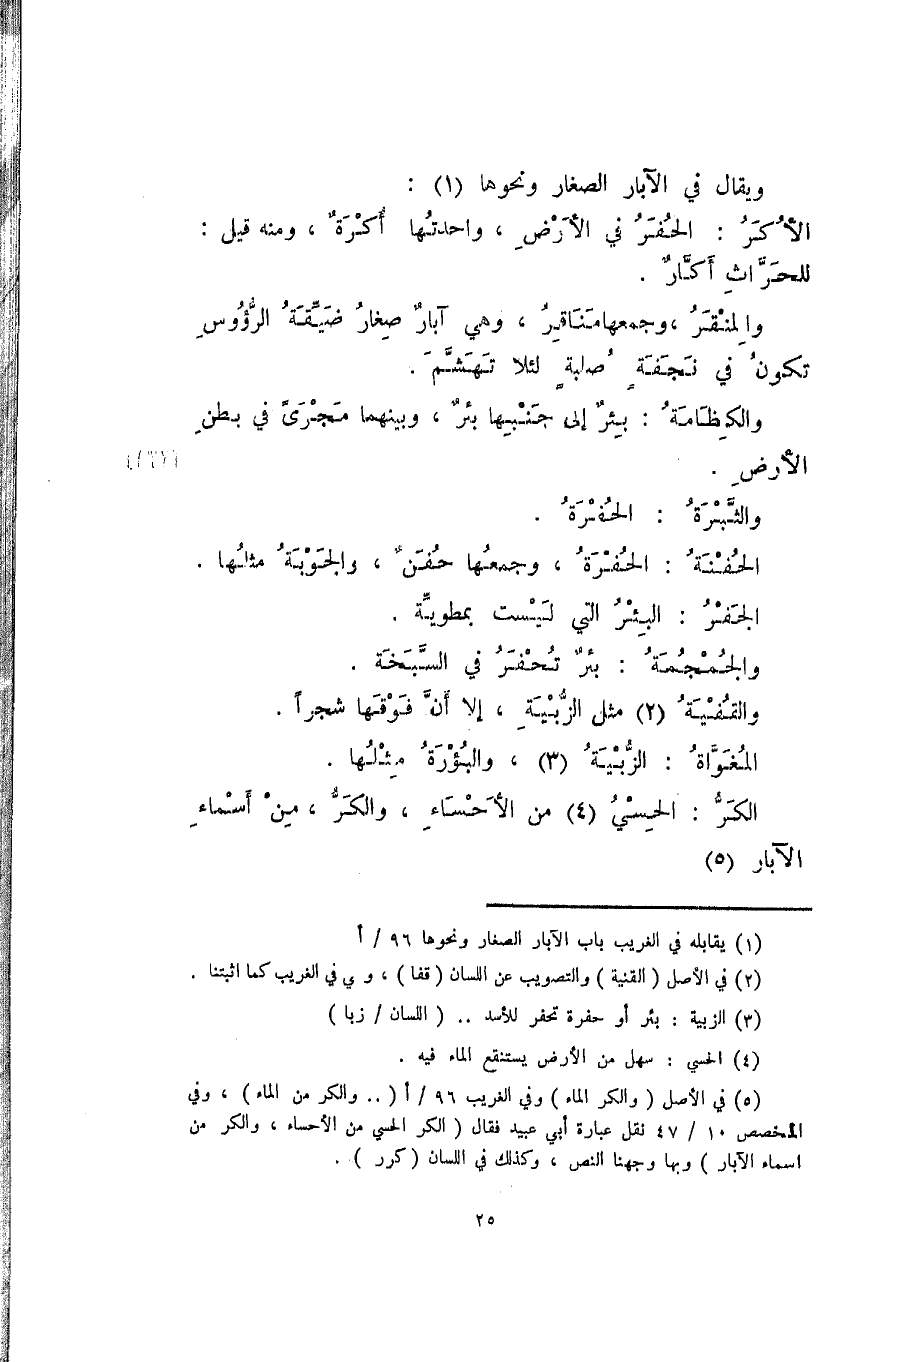 ويقال في الآبار الصغار ونحوها (١) :
الأُكَرُ : الحُفَرُ في الأَرْضِ ، واحدتُها أُكْرَةٌ ، ومنه قيل :
للحَرَّاثِ أَكَّارٌ .
والمِنْقَرُ ،وجمعهامَنَاقِرُ ، وهي آبارٌ صِغارُ ضَيِّقَةُ الرُّؤُوسِ
تكونُ في نَجَفَةٍ صُلبةٍ لئلا تَهَشَّمَ .
والكِظَامَةُ : بِئرٌ إلى جَنْبِها بئرٌ ، وبينهما مَجْرَىً في بطنِ
الأرضِ .
والثَّبْرَةُ : الحُفْرَةُ .
الحُفْنَةُ : الحُفْرَةُ ، وجمعُها حُفَنٌ ، والجَوْبَةُ مثلُها .
الجَفْرُ : البِئْرُ التي لَيْست بمطويَّة .
والجُمْجُمَةُ : بئرٌ تُحْفَرُ في السَّبَخَة .
والقُفْيَةُ (٢) مثل الزُّبْيَةِ ، إلا أَنَّ فَوْقَها شجراً .
المُغَوَّاةُ : الزُّبْيَةُ (٣) ، والبُؤْرَةُ مِثْلُها .
الكَرُّ : الحِسْيُ (٤) من الأَحْسَاءِ ، والكَرُّ ، مِنْ أَسْماءِ
الآبار (٥)
(١) يقابله في الغريب باب الآبار الصغار ونحوها ٩٦ / أ
(٢) في الأصل ( القنية ) والتصويب عن اللسان ( قفا ) ، و ي في الغريب كما اثبتنا .
(٣) الزبية : بئر أو حفرة تحفر للأسد .. ( اللسان / زبا )
(٤) الحسي : سهل من الأرض يستنقع الماء فيه .
(٥) في الأصل ( والكر الماء ) وفي الغريب ٩٦ / أ ( .. والكر من الماء ) ، وفي
المخصص ١٠ / ٤٧ نقل عبارة أبي عبيد فقال ( الكر الحسي من الأحساء ، والكر من
اسماء الآبار ) وبها وجهنا النص ، وكذلك في اللسان ( كرر ) .
٢٥